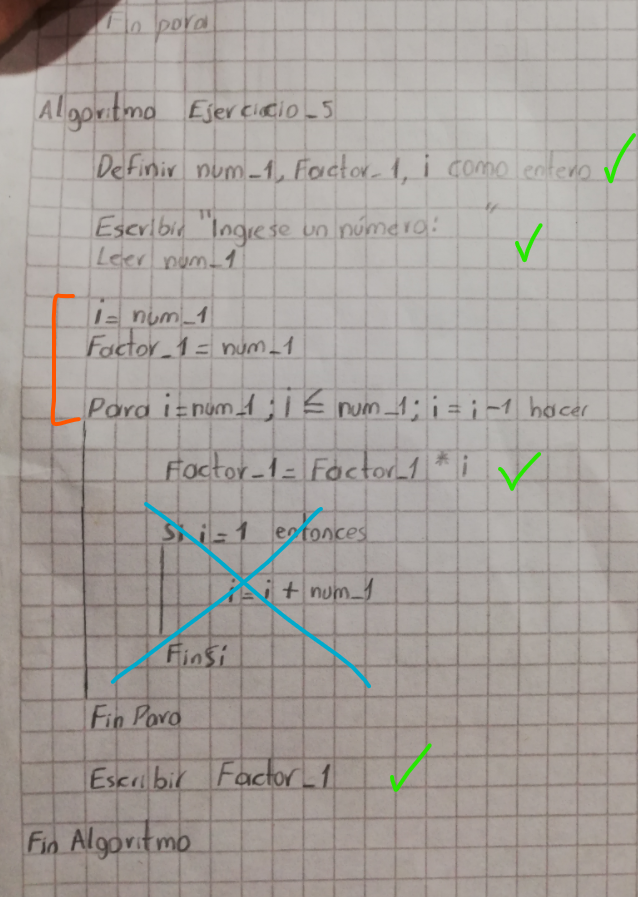 Fin para
Algoritmo Ejercicio_5
Definir num_1, Factor_1, i como entero
Escribir "Ingrese un número: "
Leer num_1
i= num_1
Factor_1 = num_1
Para i=num_1 ; i ≤ num_1 ; i = i-1 hacer
Factor_1 = Factor_1 * i
Si i = 1 entonces
i = i + num_1
FinSi
Fin Para
Escribir Factor_1
Fin Algoritmo